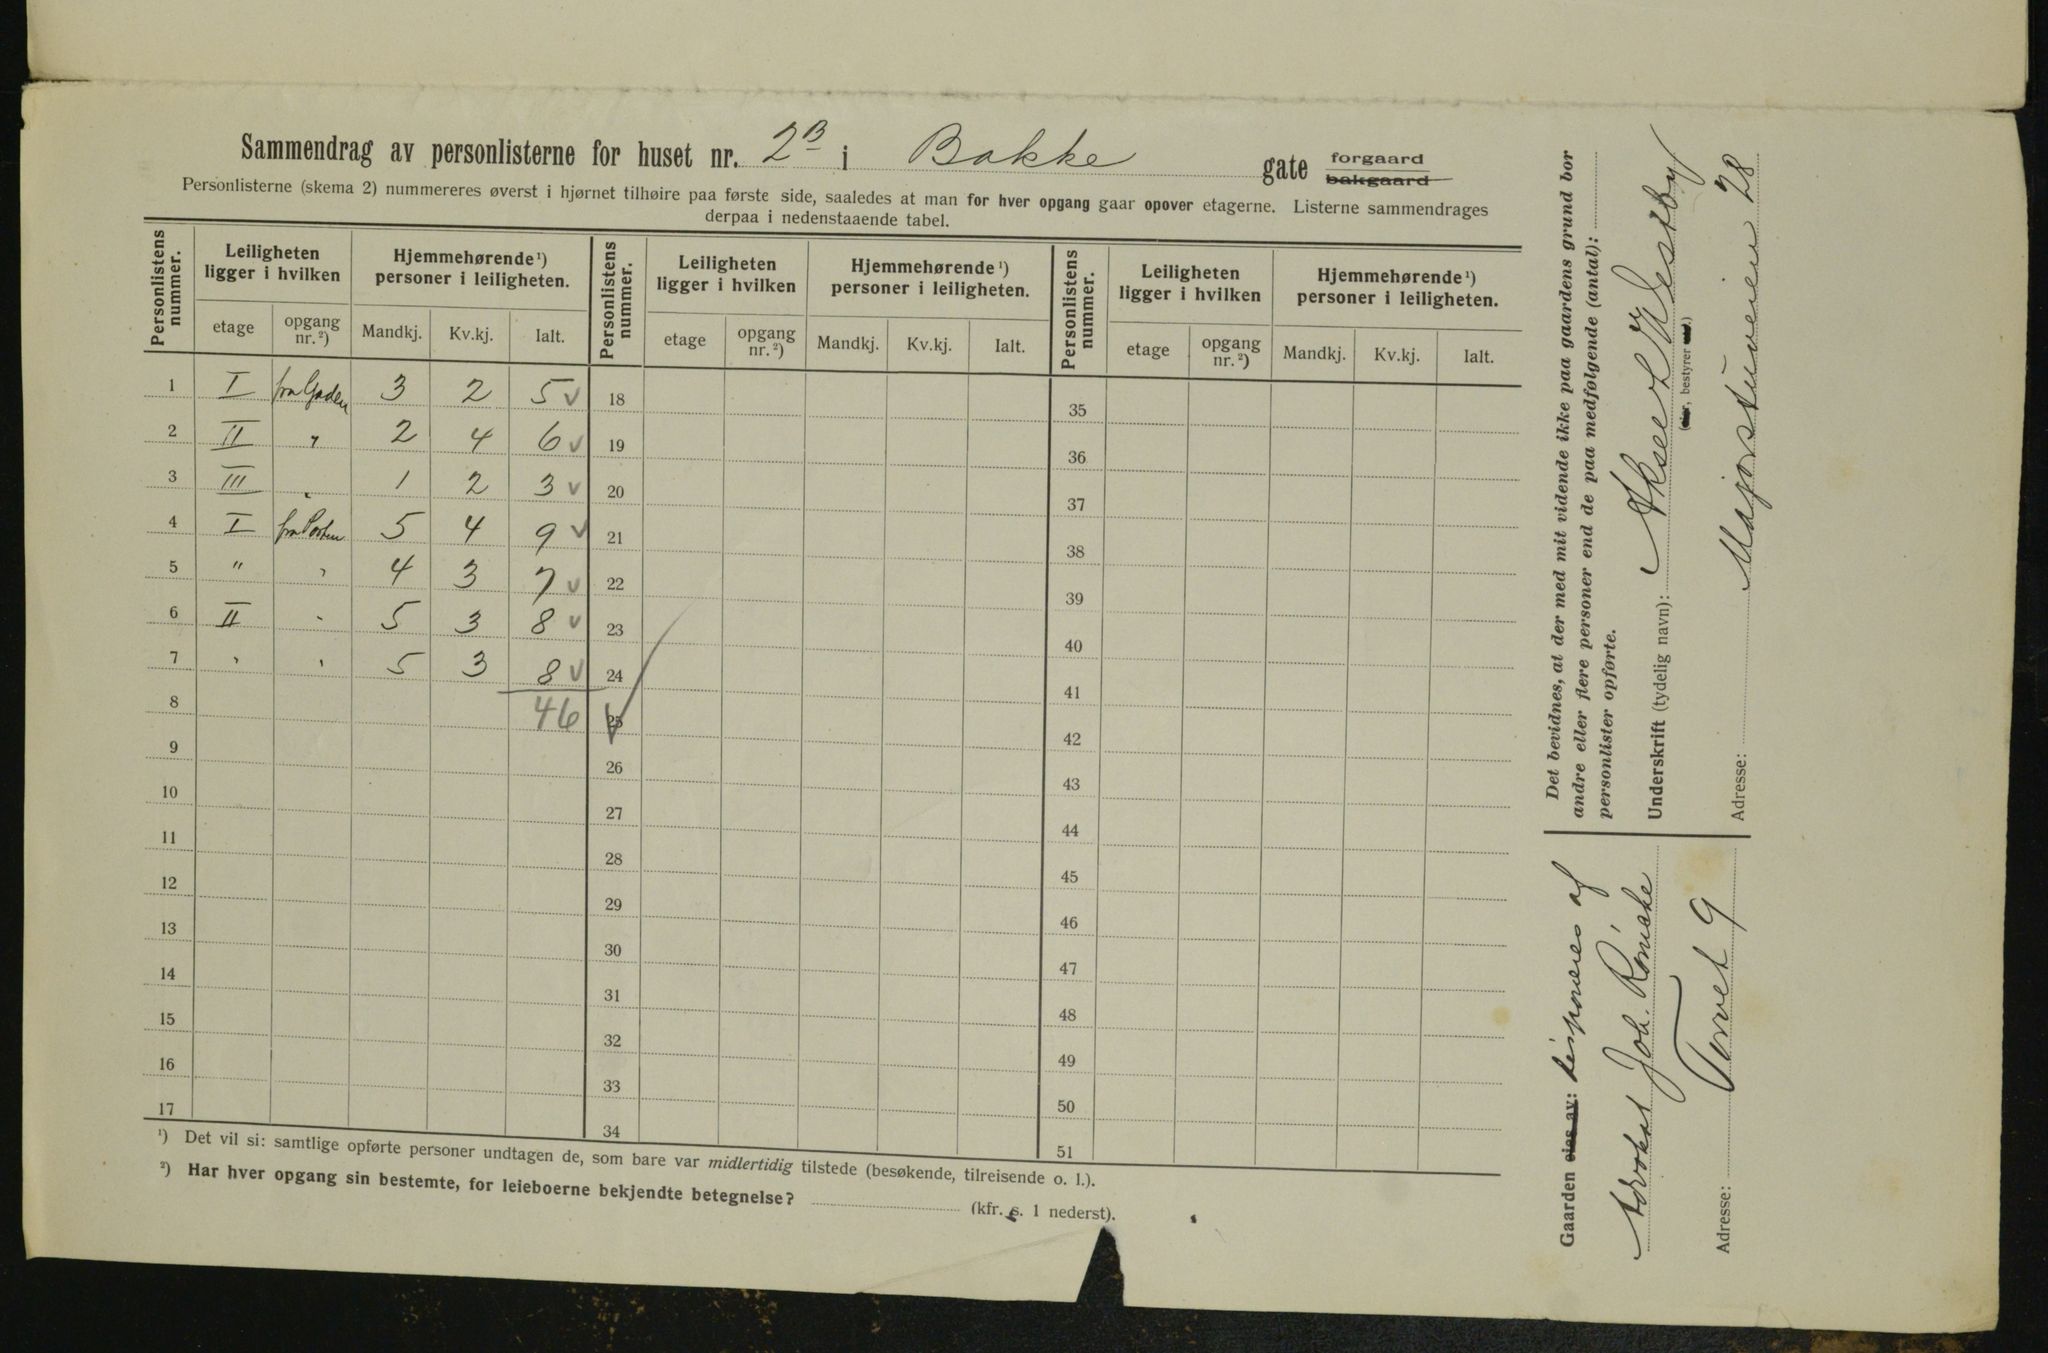 Sammendrag av personlisterne for huset nr. 2B i Bakke gate forgaard bakgaard
Personlisterne (skema 2) nummereres øverst i hjørnet tilhøire paa første side, saaledes at man for hver opgang gaar opover etagerne. Listerne sammendrages
derpaa i nedenstaaende tabel.
Personlistens nummer. Leiligheten ligger i hvilken Hjemmehørende ¹) personer i leiligheten. Personlistens nummer. Leiligheten ligger i hvilken Hjemmehørende ¹) personer i leiligheten. Personlistens nummer. Leiligheten ligger i hvilken Hjemmehørende ¹) personer i leiligheten.
etage opgang nr. ²) Mandkj. Kv.kj. Ialt. etage opgang nr. ²) Mandkj. Kv.kj. Ialt. etage opgang nr. ²) Mandkj. Kv.kj. Ialt.
1 I fra Gaden 3 2 5 ✓ 18 35
2 II " 2 4 6 ✓ 19 36
3 III " 1 2 3 ✓ 20 37
4 I fra Porten 5 4 9 ✓ 21 38
5 " " 4 3 7 ✓ 22 39
6 II " 5 3 8 ✓ 23 40
7 " " 5 3 8 ✓ 24 41
8 46 25 42
9 26 43
10 27 44
11 28 45
12 29 46
13 30 47
14 31 48
15 32 49
16 33 50
17 34 51
¹) Det vil si: samtlige opførte personer undtagen de, som bare var midlertidig tilstede (besøkende, tilreisende o. l.).
²) Har hver opgang sin bestemte, for leieboerne bekjendte betegnelse? (kfr. s. 1 nederst).
Det bevidnes, at der med mit vidende ikke paa gaardens grund bor
andre eller flere personer end de paa medfølgende (antal):
personlister opførte.
Underskrift (tydelig navn): Aksel Westby
(eier, bestyrer
Adresse: Majorstuveien 28
Gaarden eies av: disponeres af
Advokat Joh. Rönske
Adresse: Torvet 9